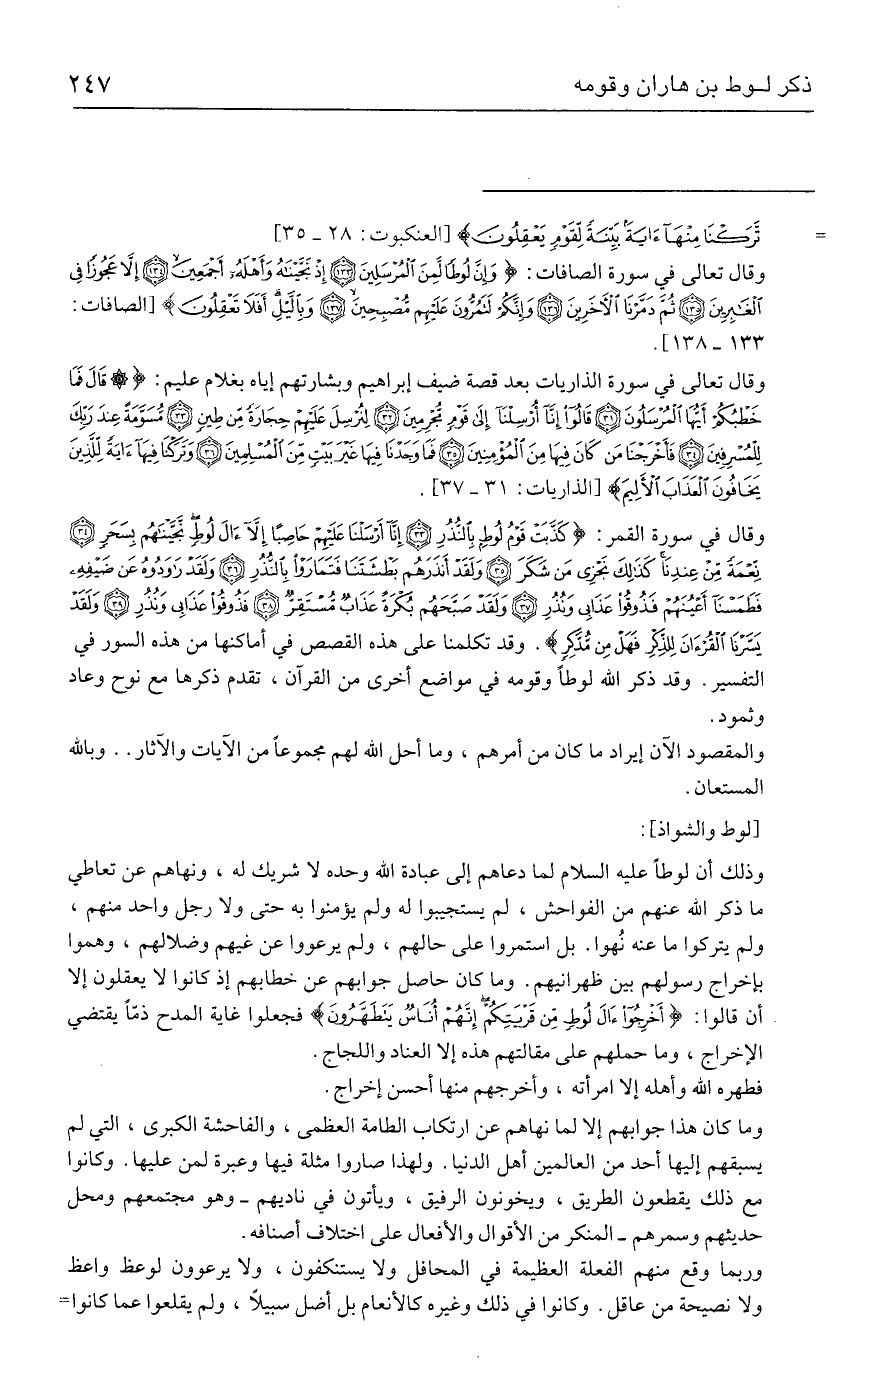 ذكر لـوط بن هاران وقومه ٢٤٧
= تَّرَكْنَا مِنْهَآ ءَايَةًۢ بَيِّنَةً لِّقَوْمٍ يَعْقِلُونَ﴾ [العنكبوت: ٢٨ ـ ٣٥]
وقال تعالى في سورة الصافات: ﴿ وَإِنَّ لُوطًا لَّمِنَ ٱلْمُرْسَلِينَ ١٣٣ إِذْ نَجَّيْنَٰهُ وَأَهْلَهُۥٓ أَجْمَعِينَ ١٣٤ إِلَّا عَجُوزًا فِى
ٱلْغَٰبِرِينَ ١٣٥ ثُمَّ دَمَّرْنَا ٱلْأَخَرِينَ ١٣٦ وَإِنَّكُمْ لَتَمُرُّونَ عَلَيْهِم مُّصْبِحِينَ ١٣٧ وَبِٱلَّيْلِ أَفَلَا تَعْقِلُونَ ﴾ [الصافات:
١٣٣ ـ ١٣٨].
وقال تعالى في سورة الذاريات بعد قصة ضيف إبراهيم وبشارتهم إياه بغلام عليم: ﴿ ۞ قَالَ فَمَا
خَطْبُكُمْ أَيُّهَا ٱلْمُرْسَلُونَ ٣١ قَالُوٓا۟ إِنَّآ أُرْسِلْنَآ إِلَىٰ قَوْمٍ مُّجْرِمِينَ ٣٢ لِنُرْسِلَ عَلَيْهِمْ حِجَارَةً مِّن طِينٍ ٣٣ مُّسَوَّمَةً عِندَ رَبِّكَ
لِلْمُسْرِفِينَ ٣٤ فَأَخْرَجْنَا مَن كَانَ فِيهَا مِنَ ٱلْمُؤْمِنِينَ ٣٥ فَمَا وَجَدْنَا فِيهَا غَيْرَ بَيْتٍ مِّنَ ٱلْمُسْلِمِينَ ٣٦ وَتَرَكْنَا فِيهَآ ءَايَةً لِّلَّذِينَ
يَخَافُونَ ٱلْعَذَابَ ٱلْأَلِيمَ﴾ [الذاريات: ٣١ ـ ٣٧] .
وقال في سورة القمر: ﴿ كَذَّبَتْ قَوْمُ لُوطٍۭ بِٱلنُّذُرِ ٣٣ إِنَّآ أَرْسَلْنَا عَلَيْهِمْ حَاصِبًا إِلَّآ ءَالَ لُوطٍ نَّجَّيْنَٰهُم بِسَحَرٍ ٣٤
نِّعْمَةً مِّنْ عِندِنَا كَذَٰلِكَ نَجْزِى مَن شَكَرَ ٣٥ وَلَقَدْ أَنذَرَهُم بَطْشَتَنَا فَتَمَارَوْا۟ بِٱلنُّذُرِ ٣٦ وَلَقَدْ رَٰوَدُوهُ عَن ضَيْفِهِۦ
فَطَمَسْنَآ أَعْيُنَهُمْ فَذُوقُوا۟ عَذَابِى وَنُذُرِ ٣٧ وَلَقَدْ صَبَّحَهُم بُكْرَةً عَذَابٌ مُّسْتَقِرٌّ ٣٨ فَذُوقُوا۟ عَذَابِى وَنُذُرِ ٣٩ وَلَقَدْ
يَسَّرْنَا ٱلْقُرْءَانَ لِلذِّكْرِ فَهَلْ مِن مُّدَّكِرٍ ﴾ . وقد تكلمنا على هذه القصص في أماكنها من هذه السور في
التفسير . وقد ذكر الله لوطاً وقومه في مواضع أخرى من القرآن ، تقدم ذكرها مع نوح وعاد
وثمود.
والمقصود الآن إيراد ما كان من أمرهم ، وما أحل الله لهم مجموعاً من الآيات والآثار. . وبالله
المستعان .
[لوط والشواذ]:
وذلك أن لوطاً عليه السلام لما دعاهم إلى عبادة الله وحده لا شريك له ، ونهاهم عن تعاطي
ما ذكر الله عنهم من الفواحش ، لم يستجيبوا له ولم يؤمنوا به حتى ولا رجل واحد منهم ،
ولم يتركوا ما عنه نُهوا. بل استمروا على حالهم ، ولم يرعووا عن غيهم وضلالهم ، وهموا
بإخراج رسولهم بين ظهرانيهم. وما كان حاصل جوابهم عن خطابهم إذ كانوا لا يعقلون إلا
أن قالوا: ﴿ أَخْرِجُوٓا۟ ءَالَ لُوطٍ مِّن قَرْيَتِكُمْ إِنَّهُمْ أُنَاسٌ يَتَطَهَّرُونَ﴾ فجعلوا غاية المدح ذمّاً يقتضي
الإخراج ، وما حملهم على مقالتهم هذه إلا العناد واللجاج.
فطهره الله وأهله إلا امرأته ، وأخرجهم منها أحسن إخراج.
وما كان هذا جوابهم إلا لما نهاهم عن ارتكاب الطامة العظمى ، والفاحشة الكبرى ، التي لم
يسبقهم إليها أحد من العالمين أهل الدنيا. ولهذا صاروا مثلة فيها وعبرة لمن عليها. وكانوا
مع ذلك يقطعون الطريق ، ويخونون الرفيق ، ويأتون في ناديهم ـ وهو مجتمعهم ومحل
حديثهم وسمرهم ـ المنكر من الأقوال والأفعال على اختلاف أصنافه.
وربما وقع منهم الفعلة العظيمة في المحافل ولا يستنكفون ، ولا يرعوون لوعظ واعظ
ولا نصيحة من عاقل. وكانوا في ذلك وغيره كالأنعام بل أضل سبيلاً ، ولم يقلعوا عما كانوا=